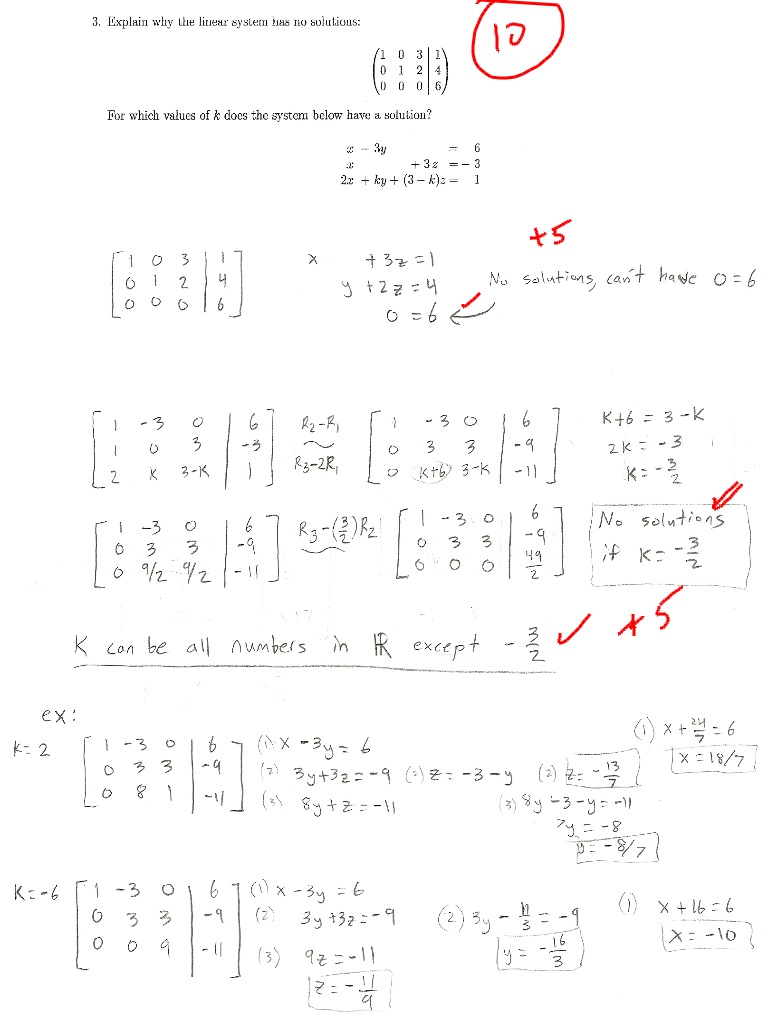 3. Explain why the linear system has no solutions:
10
1 0 3 | 1
0 1 2 | 4
0 0 0 | 6
For which values of k does the system below have a solution?
x − 3y = 6
x + 3z = −3
2x + ky + (3 − k)z = 1
+5
1 0 3 | 1
0 1 2 | 4
0 0 0 | 6
x + 3z = 1
y + 2z = 4
0 = 6
No solutions, can't have 0 = 6
1 -3 0 | 6
1 0 3 | -3
2 K 3-K | 1
R2-R1
~
R3-2R1
1 -3 0 | 6
0 3 3 | -9
0 K+6 3-K | -11
K+6 = 3-K
2K = -3
K = -3/2
1 -3 0 | 6
0 3 3 | -9
0 9/2 9/2 | -11
R3-(3/2)R2
~
1 -3 0 | 6
0 3 3 | -9
0 0 0 | 49/2
No solutions
if K = -3/2
K can be all numbers in ℝ except -3/2 ✓ +5
ex:
K=2
1 -3 0 | 6
0 3 3 | -9
0 8 1 | -11
(1) x - 3y = 6
(2) 3y + 3z = -9
(3) 8y + z = -11
(2) z = -3 - y
(2) z = -13/7
(3) 8y - 3 - y = -11
7y = -8
y = -8/7
(1) x + 24/7 = 6
x = 18/7
K=-6
1 -3 0 | 6
0 3 3 | -9
0 0 9 | -11
(1) x - 3y = 6
(2) 3y + 3z = -9
(3) 9z = -11
z = -11/9
(2) 3y - 11/3 = -9
y = -16/3
(1) x + 16 = 6
x = -10